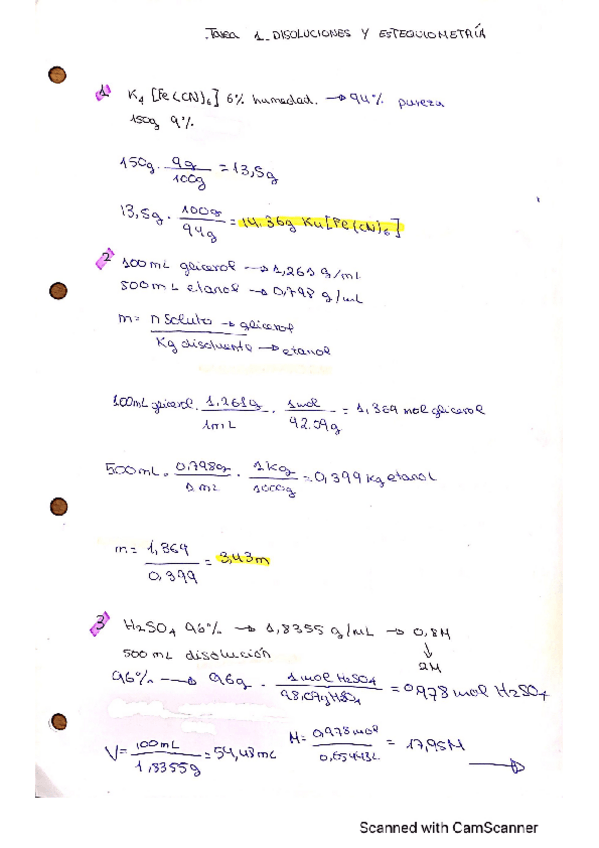 Tarea 1_DISOLUCIONES Y ESTEQUIOMETRÍA
1 K4 [Fe(CN)6] 6% humedad. → 94% pureza
150g 9%
150g · 9g/100g = 13,5g
13,5g · 100g/94g = 14.36g K4[Fe(CN)6]
2 100mL glicerol → 1,261 g/mL
500mL etanol → 0,798 g/mL
m = n soluto → glicerol
Kg disolvente → etanol
100mL glicerol · 1.261g/1mL · 1mol/92.09g = 1,369 mol glicerol
500mL · 0,798g/1mL · 1Kg/1000g = 0,399 Kg etanol
m = 1,369/0,399 = 3,43m
3 H2SO4 96% → 1,8355 g/mL → 0,8M
↓
500 mL disolución 2M
96% → 96g · 1mol H2SO4/98.07g H2SO4 = 0,978 mol H2SO4
V = 100mL/1,8355g = 54,48mL M = 0,978mol/0,05448L = 17,95M →
Scanned with CamScanner